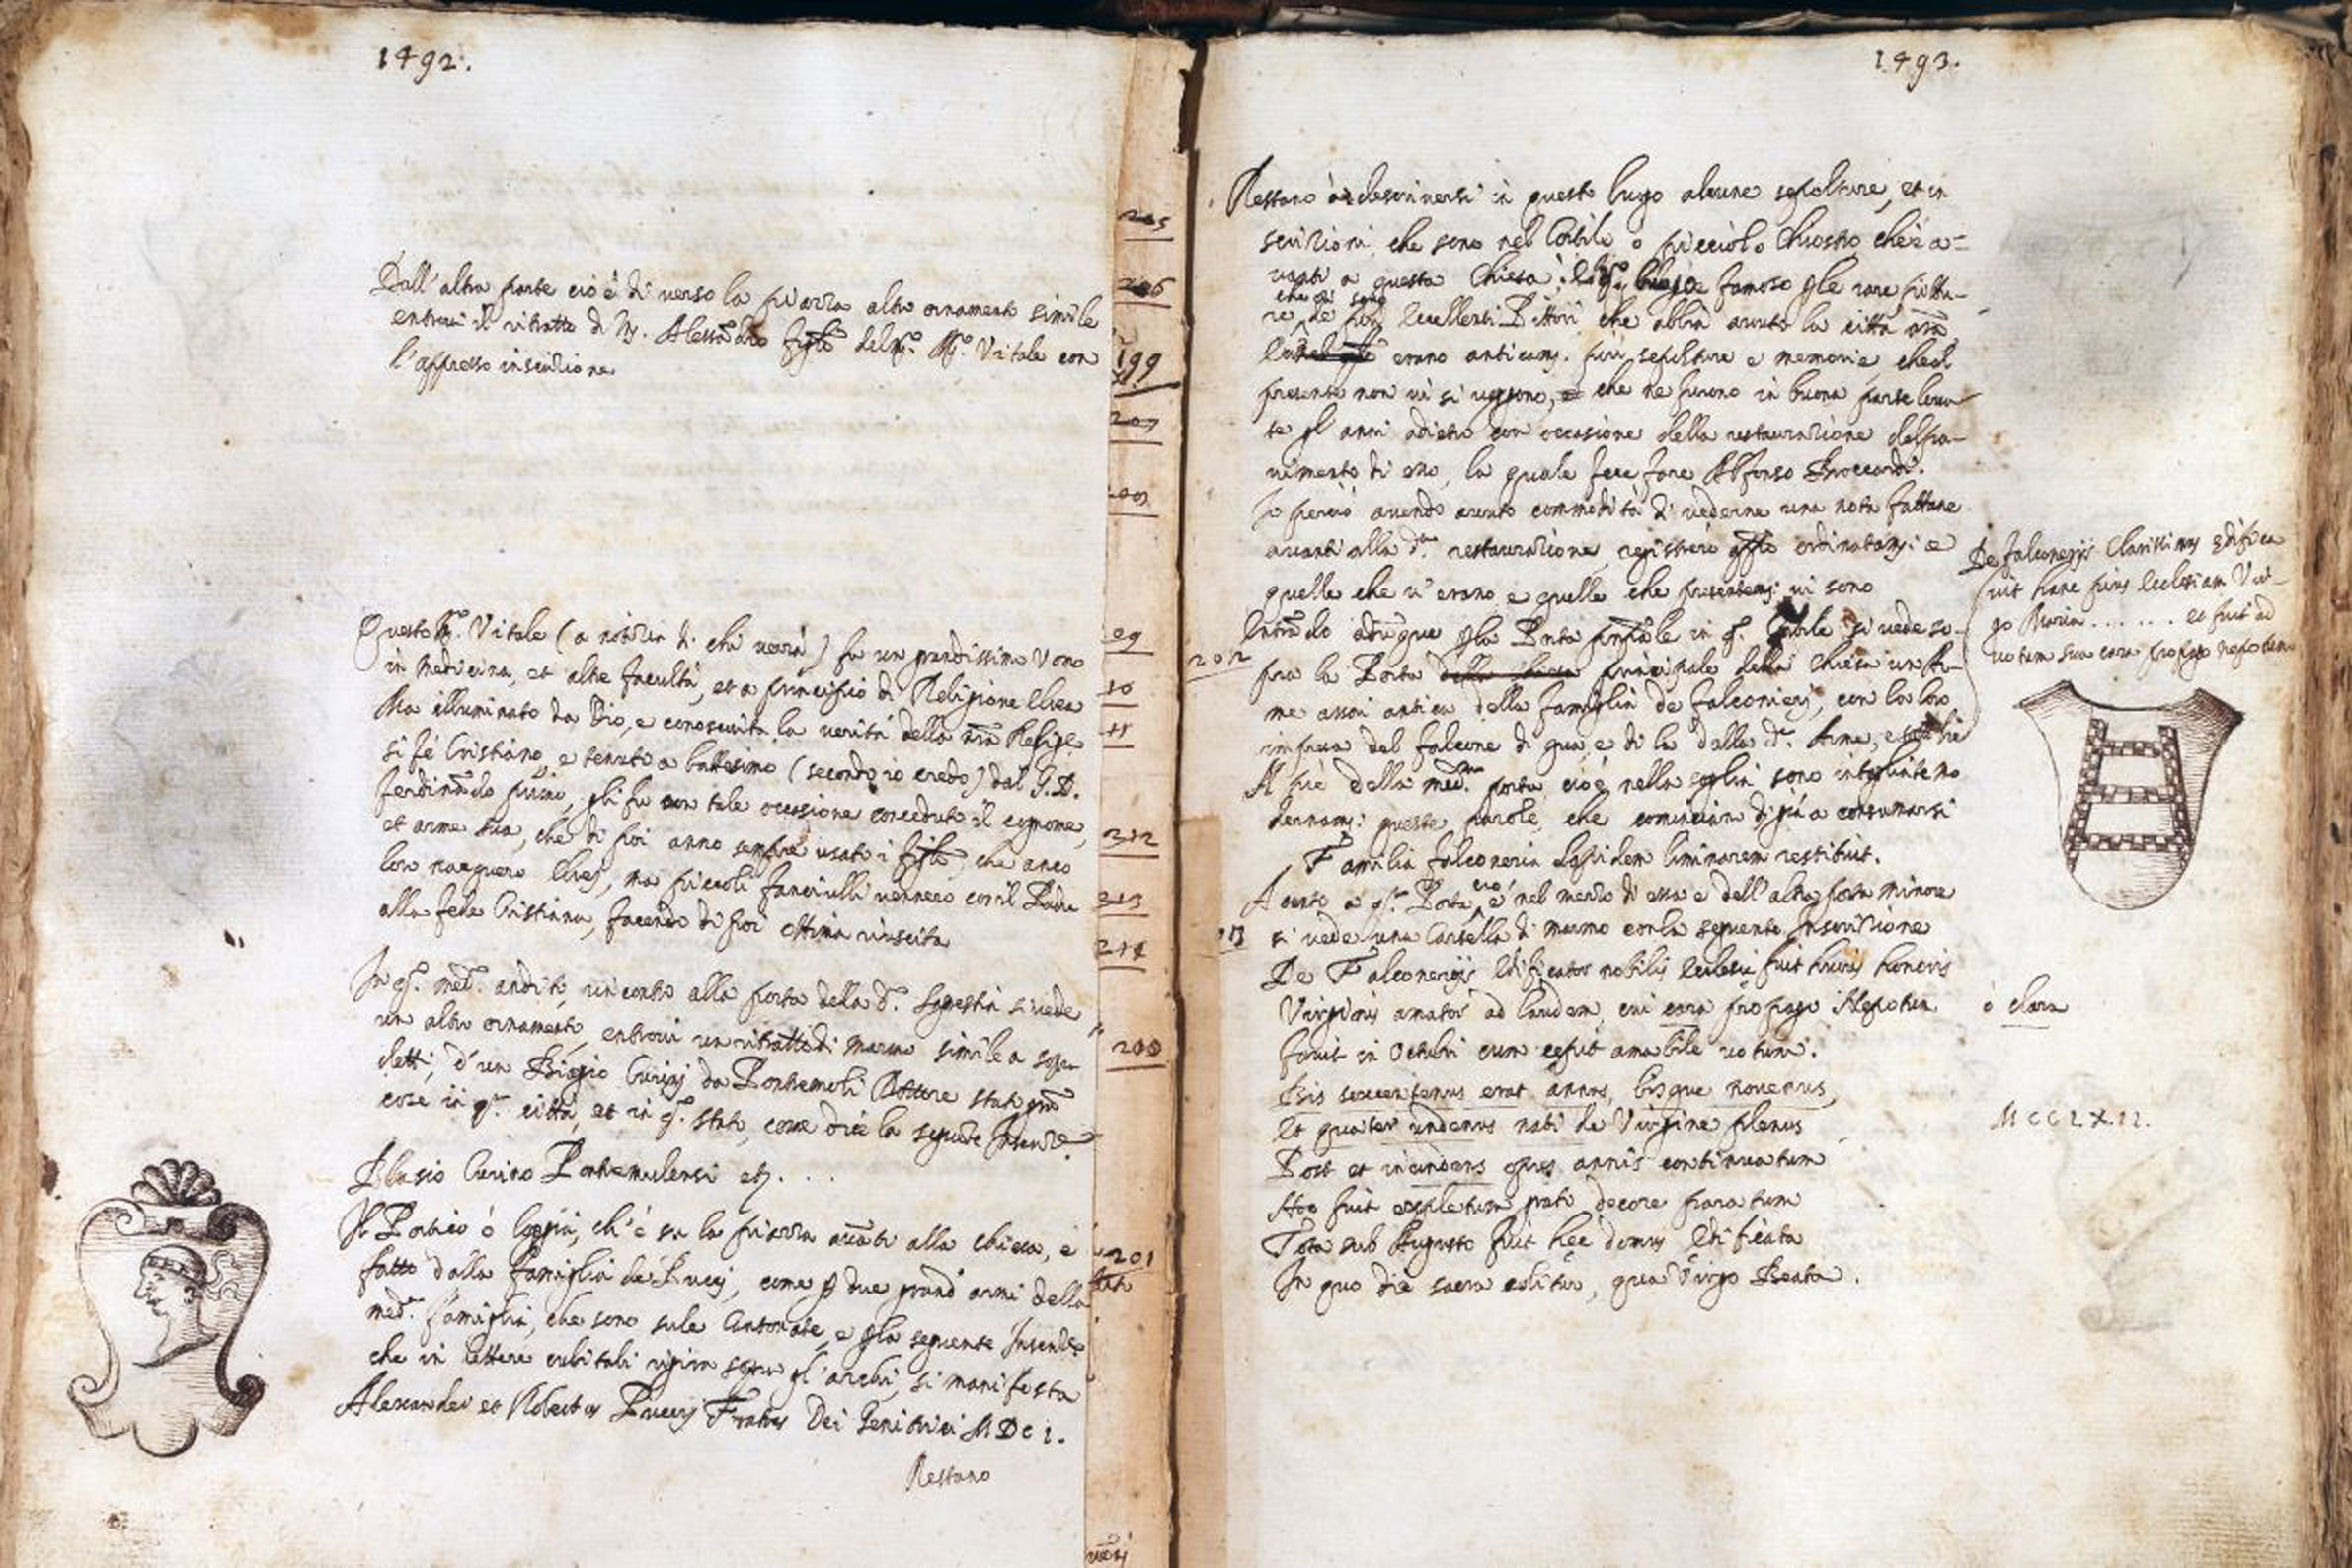 1492.
Dall'altra parte cio è di verso la piazza altro ornamento simile
entrovi il ritratto di M. Alessãdro figlo del Mº. Vitale con
l'appresso inscrizione
Questo Mº. Vitale (a notizia di chi verrà) fu un grandissimo Vomo
in Medicina, et altre facultà, et a principio di Religione Ebrea
Ma illuminato da Dio, e conosciuta la verità della nr̃a Religẽ
si fè Cristiano, e tenuto a battesimo (secondo io credo) dal G.D.
Ferdinãdo primo, gli fu con tale occasione conceduto il cognome,
et arme sua, che di poi anno sempre usato i figlj, che anco
loro nacquero Ebrej, ma piccoli fanciulli vennero con il Padre
alla fede Cristiana, facendo di poi ottima riuscita
In qᵒ. medº. andito, rincontro alla porta della dª. Sagrestia si vede
un altro ornamento, entrovi un ritratto di marmo simile a sopra
detti, d'un Biagio Curini da Pontremoli Dottore stato
cose in qª. città, et in qº. stato, come dice la seguẽte Inscriẽ.
Blasio Curino Pontremulensi etc. . . .
Il Portico ò loggia, ch'è su la piazza avãti alla chiesa, è
fatto dalla famiglia de' Pucci, come p due grand' armi della
medª. famiglia, che sono sule Cantonate, e p la seguente Inscriẽ
che in lettere cubitali sopra gl'archi, si manifesta
Alexander et Robertus Puccij Fratres Dei Genitrici MDCI.
Restano
205
206
199
207
209
10
11
212
213
214
200
201
1493.
Restano à descriversi in questo luogo alcune sepolture, et in
scrizioni che sono nel Cortile o picciolo Chiostro che è a-
vanti a questa Chiesa; luogo famoso p le rare pittu-
che vi sono
re de più Eccellenti Pittori che abbia avuto la città nr̃a
erano anticamᵉ. più sepolture e memorie, ched
presente non vi si veggono, che ne furono in buona parte leva-
te gl'anni adietro con occasione della restaurazione del pa-
vimento di esso, la quale fece fare Alfonso Broccardi.
Io perciò avendo avuto commodità di vederne una nota fattane
avanti alla dª. restaurazione, registrerò ordinatamᵉ: e
quelle che v'erano e quelle che presentemᵉ: vi sono
202
Entrãdo adũque p la Porta in qº. Cortile si vede so-
pra la Porta principale della Chiesa un Ar-
me assai antica della famiglia de Falconieri, con la loro
impresa del falcone di qua, e di la dalla dª. Arme,
Al piè della medª. porta cioè nella soglia sono intagliate mo
dernamᵉ: queste parole, che cominciano di già a consumarsi
Familia Falconeria Lapidem liminarem restituit.
Acanto a qª. Porta, cioè nel mezzo di essa e dell'altra porta minore
si vede una Cartella di marmo con la seguente Inscrizione
De Falconerijs Edificator nobilis Ecclesie fuit huius honoris
Virginis amator ad laudem, cui cara propago Nepotum
favit in Octubri cum cepit amabile votum.
Bis sexcentenus erat annus, bisque novenus,
Et quater undenus nati de Virgine plenus
Post et incendens opus annis continuatum
Hoc fuit expletum grati decore paratum
Tota sub Augusto fuit hec domus Edificata
In quo dia sacra colitur, qua Virgo Beata.
De Falconerijs Clarissimus Edifica
vit hanc pius Ecclesiam Vir-
go Maria . . . . . . et fuit ad
votum sua cara propago nepotum
ò clara
MCCLXII.